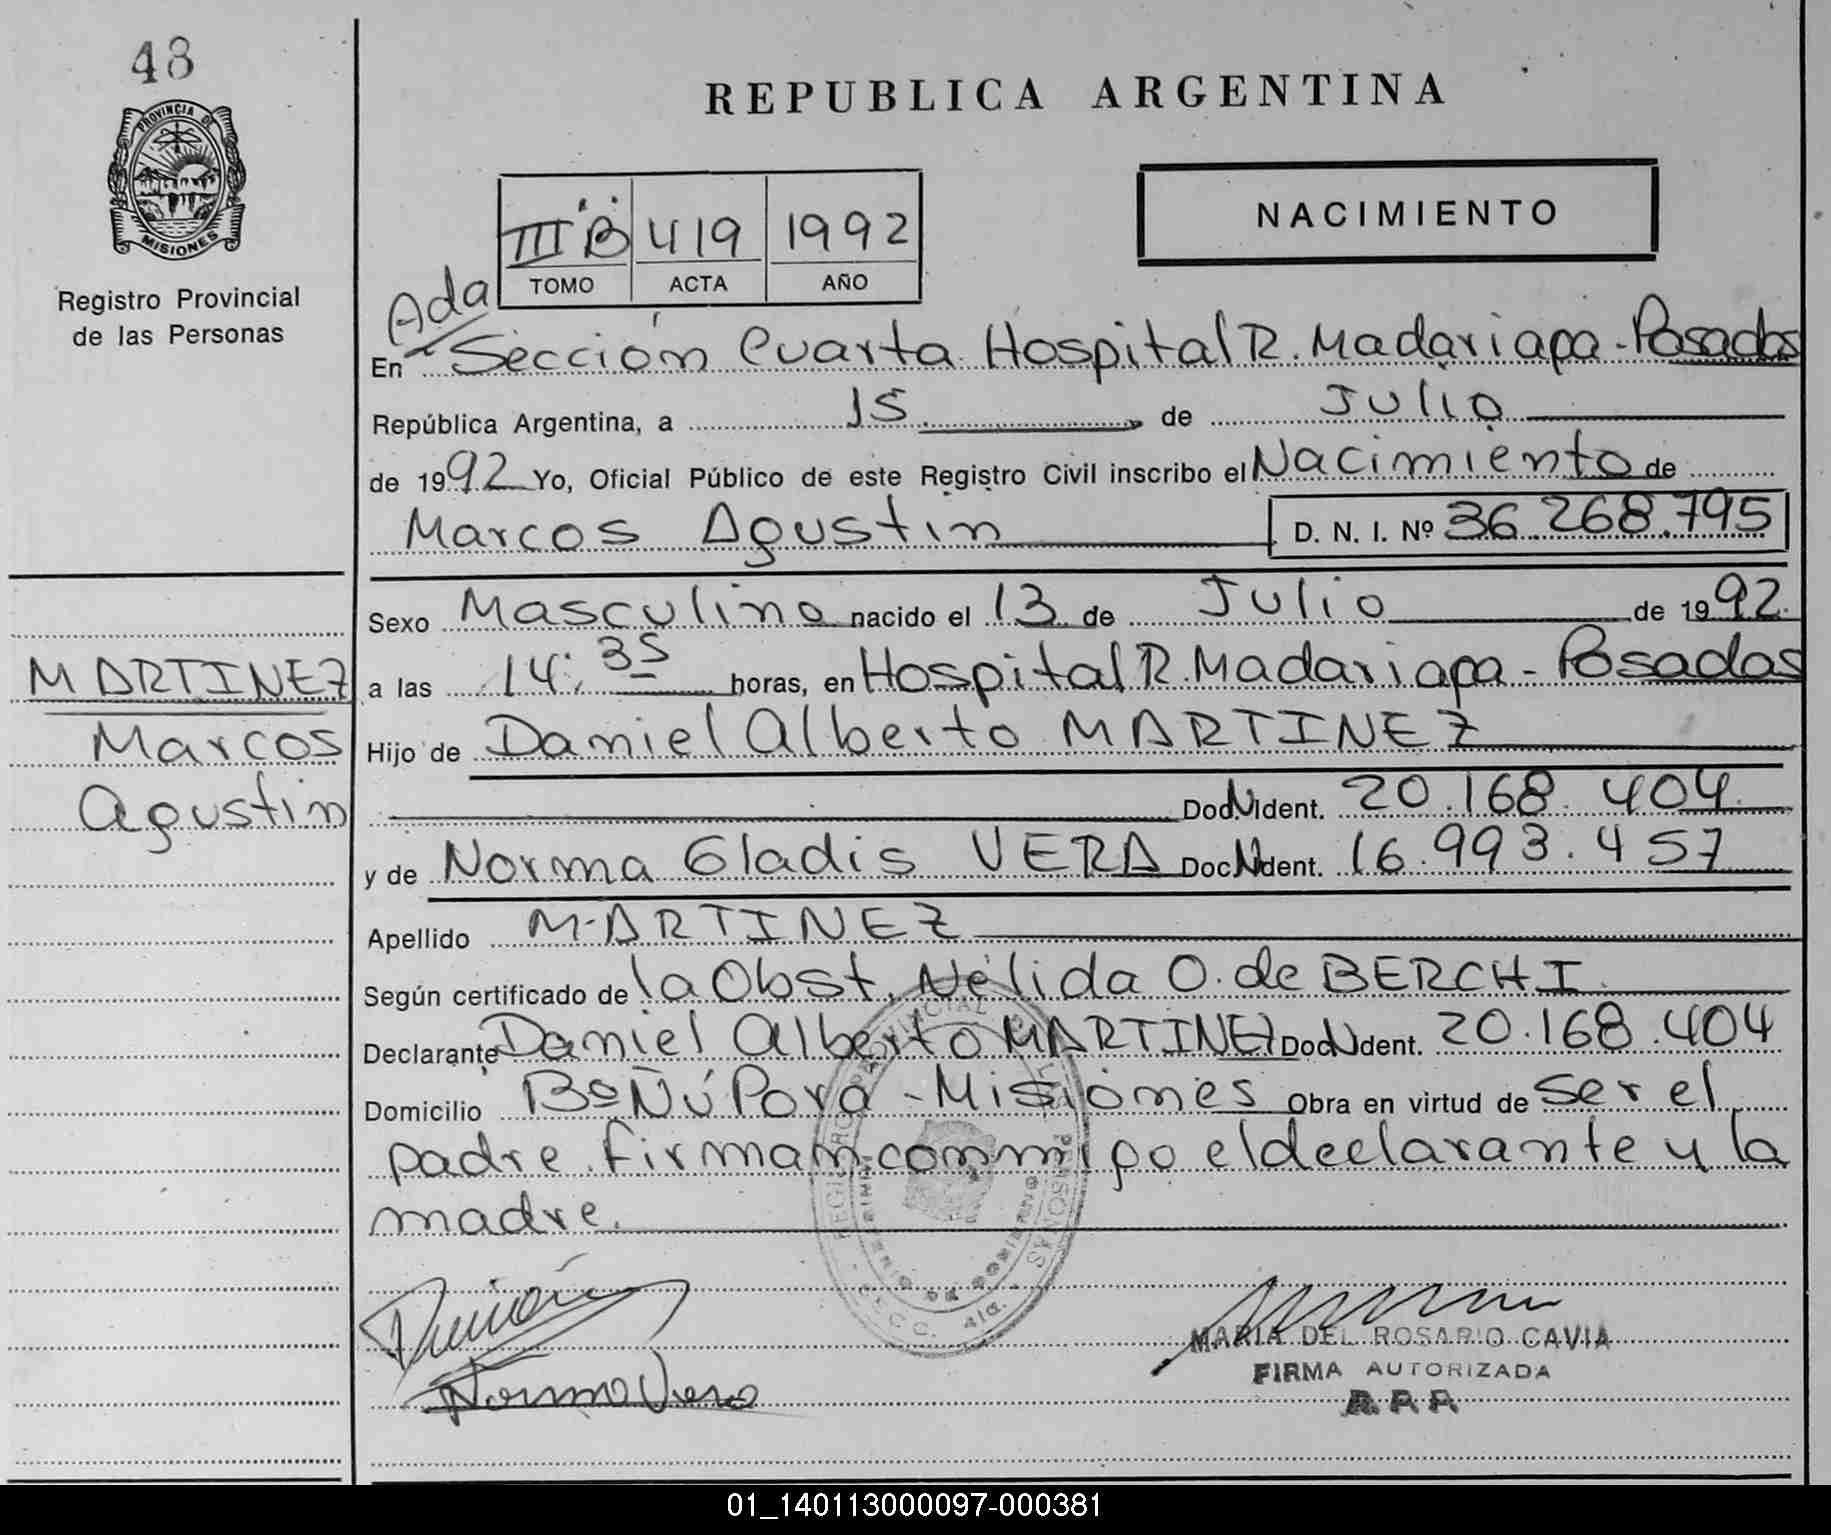 48
PROVINCIA DE
MISIONES
Registro Provincial
de las Personas
REPUBLICA ARGENTINA
III B 419 1992
TOMO ACTA AÑO
NACIMIENTO
Ada
En Sección Cuarta Hospital R. Madariaga - Posadas
República Argentina, a 15 de Julio
de 1992 Yo, Oficial Público de este Registro Civil inscribo el Nacimiento de
Marcos Agustin D. N. I. Nº 36.268.795
Sexo Masculino nacido el 13 de Julio de 1992
a las 14:35 horas, en Hospital R. Madariaga - Posadas
Hijo de Daniel Alberto MARTINEZ
Doc. N. Ident. 20.168.404
y de Norma Gladis VERA Doc N Ident. 16.993.457
Apellido MARTINEZ
Según certificado de la Obst. Nélida O. de BERCHI
Declarante Daniel Alberto MARTINEZ Doc N Ident. 20.168.404
Domicilio Bº Ñú Porá - Misiones Obra en virtud de ser el
padre. Firman conmigo el declarante y la
madre.
MARTINEZ
Marcos
Agustin
Norma Vera
MARIA DEL ROSARIO CAVIA
FIRMA AUTORIZADA
R.P.P.
01_140113000097-000381